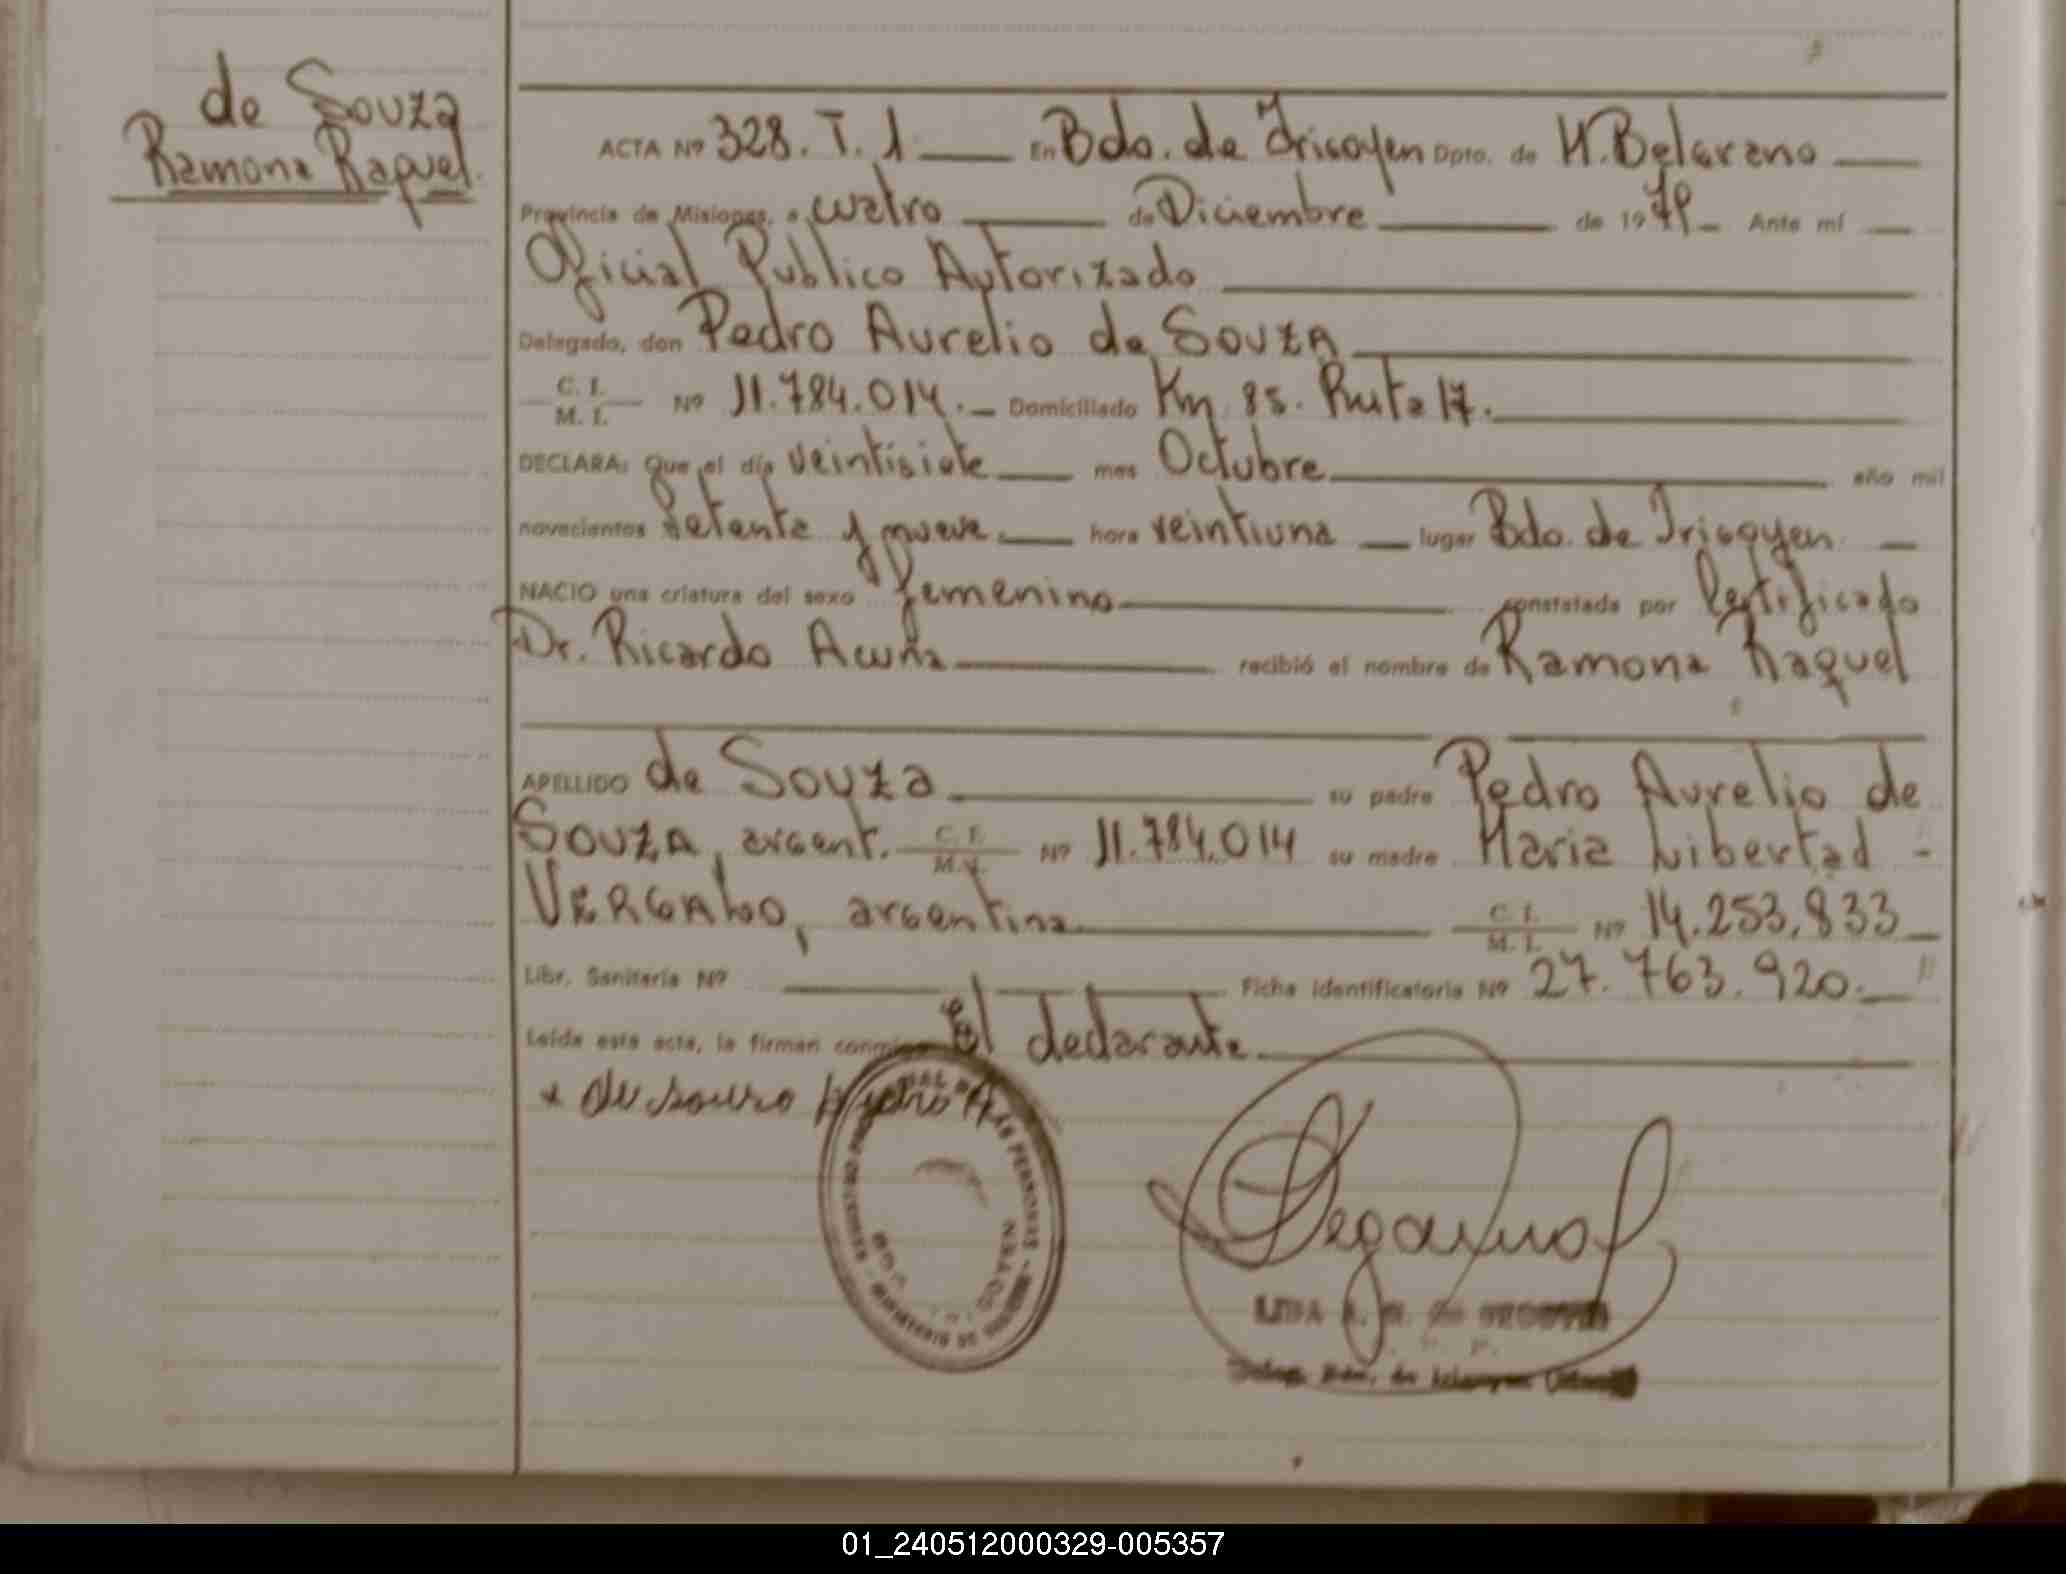 de Souza
Ramona Raquel.
ACTA Nº 328. T. 1 En Bdo. de Irigoyen Dpto. de M. Belgrano
Provincia de Misiones, a cuatro de Diciembre de 1979 Ante mí
Oficial Publico Autorizado
Delegado, don Pedro Aurelio de Souza
C. I.
M. I. Nº 11.784.014. Domiciliado Km 85. Ruta 17.
DECLARA: Que el día veintisiete mes Octubre año mil
novecientos setenta y nueve hora veintiuna lugar Bdo. de Irigoyen
NACIO una criatura del sexo femenino constatada por Certificado
Dr. Ricardo Acuña recibió el nombre de Ramona Raquel
APELLIDO de Souza su padre Pedro Aurelio de
Souza, argent. C. I. M. I. Nº 11.784.014 su madre Maria Libertad
argentina C. I. M. I. Nº 14.253.833
Libr. Sanitaria Nº Ficha identificatoria Nº 27.763.920.
Leída esta acta, la firman conmigo El declarante
de souza pedro A
01_240512000329-005357